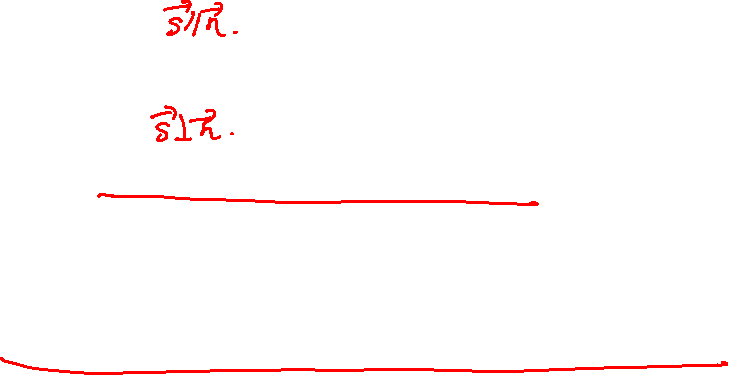 $\vec{s} // \vec{n}$.
$\vec{s} \perp \vec{n}$.